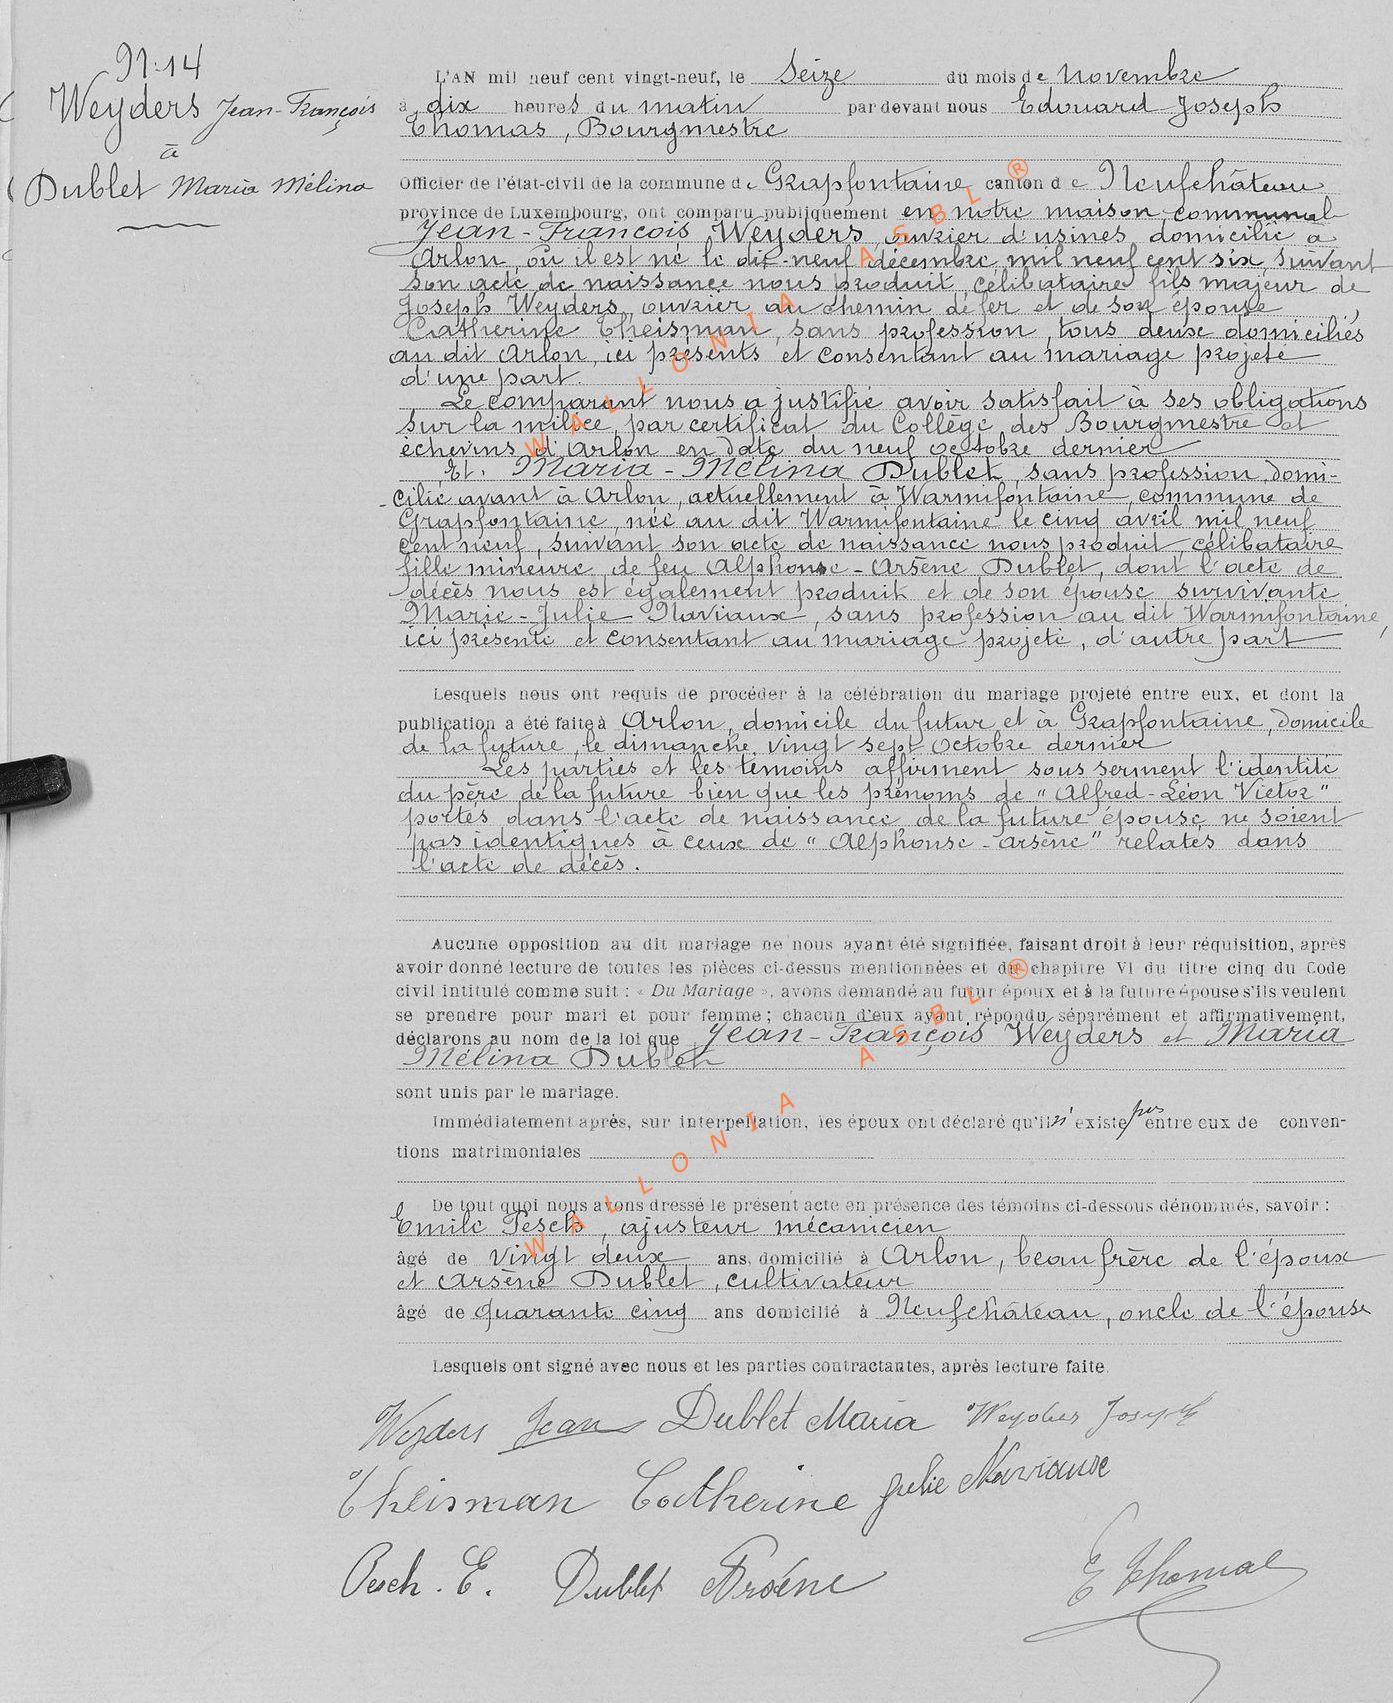 N. 14
Weyders Jean-François
à
Dublet Maria Mélina
L'AN mil neuf cent vingt-neuf, le Seize du mois de Novembre
à dix heures du matin par devant nous Edouard Joseph
Thomas, Bourgmestre
Officier de l'état-civil de la commune de Grapfontaine, canton de Neufchâteau
province de Luxembourg, ont comparu publiquement en notre maison communale
Jean-François Weyders, ouvrier d'usines domicilié à
Arlon, où il est né le dix-neuf décembre mil neuf cent six, suivant
son acte de naissance nous produit, célibataire fils majeur de
Joseph Weyders, ouvrier au chemin de fer et de son épouse
Catherine Theisman, sans profession, tous deux domiciliés
au dit Arlon, ici présents et consentant au mariage projeté
d'une part.
Le comparant nous a justifié avoir satisfait à ses obligations
sur la milice, par certificat du Collège des Bourgmestre et
échevins d'Arlon en date du neuf octobre dernier
Et. Maria-Mélina Dublet, sans profession, domi-
-cilié avant à Arlon, actuellement à Warmifontaine, commune de
Grapfontaine, née au dit Warmifontaine le cinq avril mil neuf
cent neuf, suivant son acte de naissance nous produit, célibataire
fille mineure, de feu Alphonse-Arsène Dublet, dont l'acte de
décès nous est également produit et de son épouse survivante
Marie-Julie Naviaux, sans profession au dit Warmifontaine,
ici présente et consentant au mariage projeté, d'autre part
Lesquels nous ont requis de procéder à la célébration du mariage projeté entre eux, et dont la
publication a été faite à Arlon, domicile du futur et à Grapfontaine, domicile
de la future, le dimanche vingt sept octobre dernier
Les parties et les témoins affirment sous serment l'identité
du père de la future bien que les prénoms de "Alfred-Léon Victor"
portés dans l'acte de naissance de la future épouse ne soient
pas identiques à ceux de "Alphonse-Arsène" relatés dans
l'acte de décès.
Aucune opposition au dit mariage ne nous ayant été signifiée, faisant droit à leur réquisition, après
avoir donné lecture de toutes les pièces ci-dessus mentionnées et du chapitre VI du titre cinq du Code
civil intitulé comme suit : « Du Mariage », avons demandé au futur époux et à la future épouse s'ils veulent
se prendre pour mari et pour femme ; chacun d'eux ayant répondu séparément et affirmativement,
déclarons au nom de la loi que Jean-François Weyders et Maria
Mélina Dublet
sont unis par le mariage.
Immédiatement après, sur interpellation, les époux ont déclaré qu'il n'existe pas entre eux de conven-
tions matrimoniales
De tout quoi nous avons dressé le présent acte en présence des témoins ci-dessous dénommés, savoir :
Emile Pesch, ajusteur mécanicien
âgé de vingt deux ans, domicilié à Arlon, beau frère de l'époux
et Arsène Dublet, cultivateur
âgé de quarante cinq ans domicilié à Neufchâteau, oncle de l'épouse
Lesquels ont signé avec nous et les parties contractantes, après lecture faite.
Weyders Jean Dublet Maria Weyders Joseph
Theisman Catherine Julie Naviaux
Pesch. E. Dublet Arsène E Thomas
WALLONIA ASBL ®
WALLONIA ASBL ®